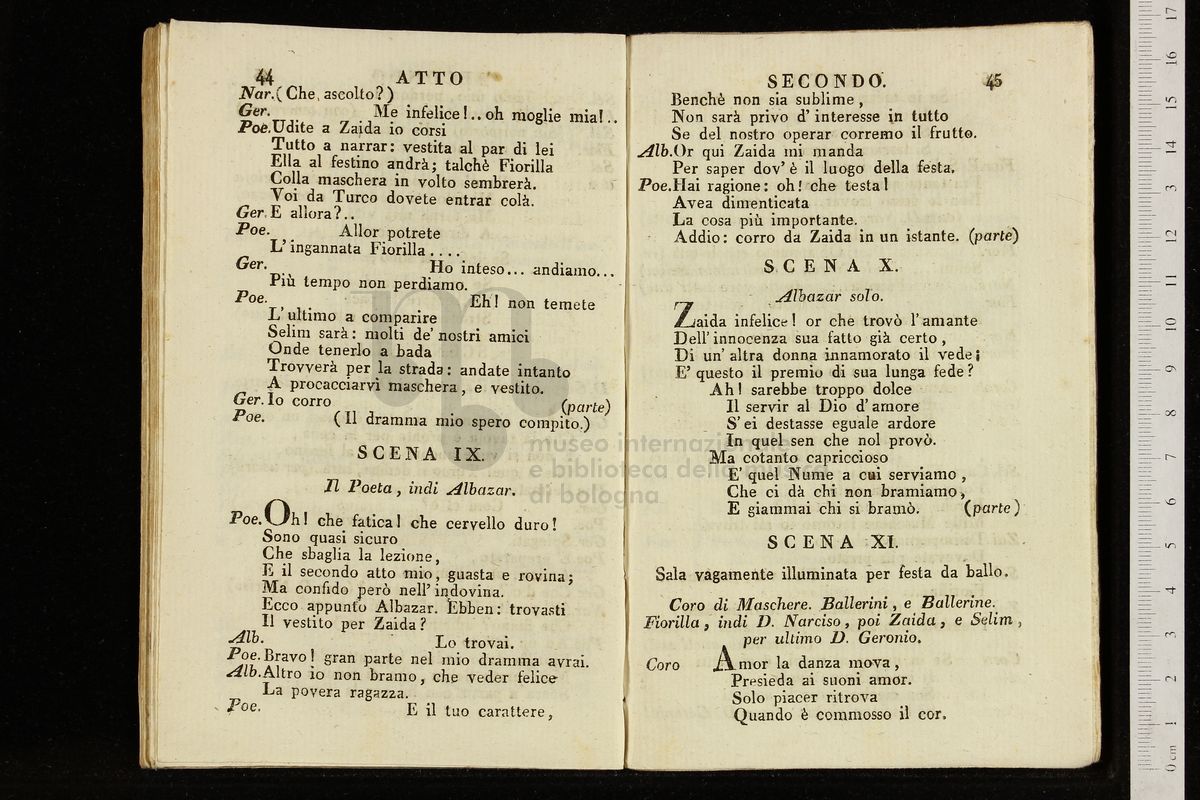 44 ATTO
Nar. (Che ascolto?)
Ger. Me infelice!.. oh moglie mia!..
Poe. Udite a Zaida io corsi
Tutto a narrar: vestita al par di lei
Ella al festino andrà; talchè Fiorilla
Colla maschera in volto sembrerà.
Voi da Turco dovete entrar colà.
Ger. E allora?..
Poe. Allor potrete
L'ingannata Fiorilla....
Ger. Ho inteso... andiamo...
Più tempo non perdiamo.
Poe. Eh! non temete
L'ultimo a comparire
Selim sarà: molti de' nostri amici
Onde tenerlo a bada
Trovverà per la strada: andate intanto
A procacciarvi maschera, e vestito.
Ger. Io corro (parte)
Poe. (Il dramma mio spero compito.)
SCENA IX.
Il Poeta, indi Albazar.
Poe. Oh! che fatica! che cervello duro!
Sono quasi sicuro
Che sbaglia la lezione,
E il secondo atto mio, guasta e rovina;
Ma confido però nell'indovina.
Ecco appunto Albazar. Ebben: trovasti
Il vestito per Zaida?
Alb. Lo trovai.
Poe. Bravo! gran parte nel mio dramma avrai.
Alb. Altro io non bramo, che veder felice
La povera ragazza.
Poe. E il tuo carattere,
SECONDO. 45
Benchè non sia sublime,
Non sarà privo d'interesse in tutto
Se del nostro operar corremo il frutto.
Alb. Or qui Zaida mi manda
Per saper dov'è il luogo della festa.
Poe. Hai ragione: oh! che testa!
Avea dimenticata
La cosa più importante.
Addio: corro da Zaida in un istante. (parte)
SCENA X.
Albazar solo.
Zaida infelice! or che trovò l'amante
Dell'innocenza sua fatto già certo,
Di un'altra donna innamorato il vede;
E' questo il premio di sua lunga fede?
Ah! sarebbe troppo dolce
Il servir al Dio d'amore
S'ei destasse eguale ardore
In quel sen che nol provò.
Ma cotanto capriccioso
E' quel Nume a cui serviamo,
Che ci dà chi non bramiamo,
E giammai chi si bramò. (parte)
SCENA XI.
Sala vagamente illuminata per festa da ballo.
Coro di Maschere. Ballerini, e Ballerine.
Fiorilla, indi D. Narciso, poi Zaida, e Selim,
per ultimo D. Geronio.
Coro Amor la danza mova,
Presieda ai suoni amor.
Solo piacer ritrova
Quando è commosso il cor.
museo internazionale
e biblioteca della musica
di bologna
0 cm 1 2 3 4 5 6 7 8 9 10 11 12 13 14 15 16 17